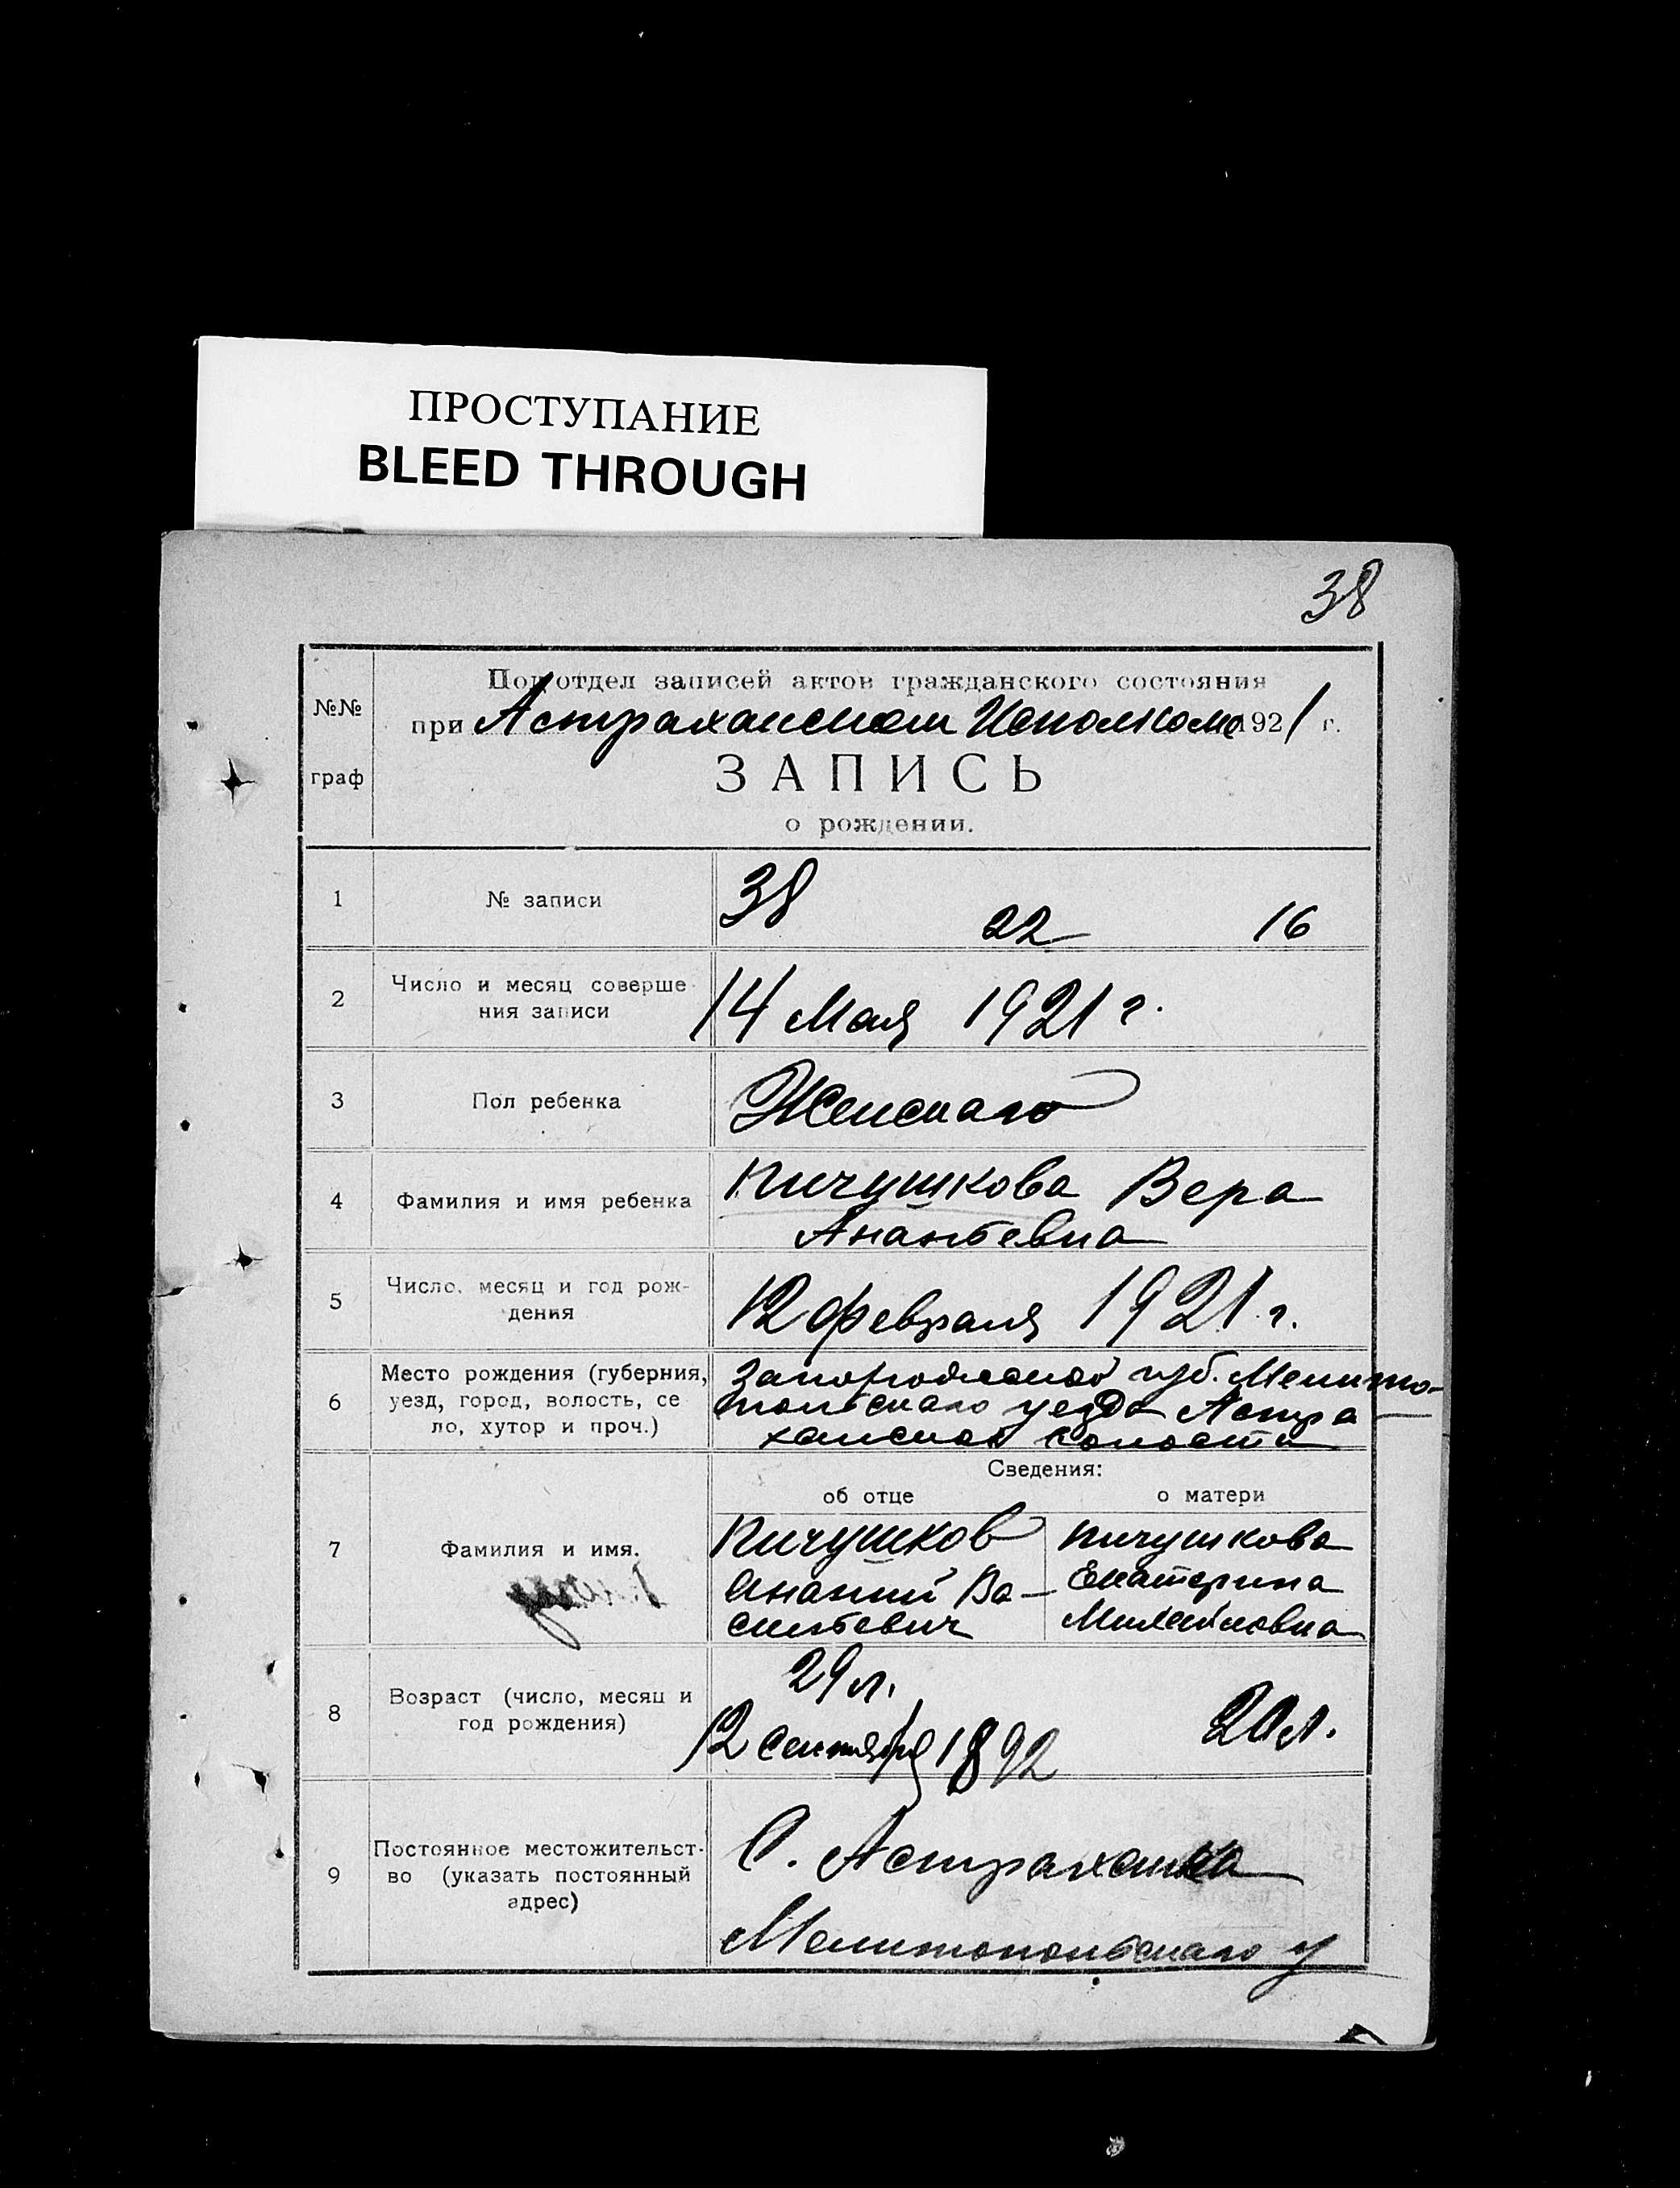 ПРОСТУПАНИЕ
BLEED THROUGH
38
№№
граф
Подотдел записей актов гражданского состояния
при Астраханском Исполкоме 1921 г.
ЗАПИСЬ
о рождении.
1 № записи 38 22 16
2 Число и месяц соверше-
ния записи 14 Мая 1921 г.
3 Пол ребенка Женскаго
4 Фамилия и имя ребенка Пичушкова Вера
Ананьевна
5 Число, месяц и год рож-
дения 12 февраля 1921 г.
6 Место рождения (губерния,
уезд, город, волость, се
ло, хутор и проч.)
Запорожской губ. Мелито-
польскаго уезда Астра
ханской волости
Сведения:
об отце о матери
7 Фамилия и имя.
Пичушков
Ананий Ва-
сильевич
Пичушкова
Екатерина
Михайловна
8 Возраст (число, месяц и
год рождения)
29 л.
12 сентября 1892
20 л.
9 Постоянное местожительст-
во (указать постоянный
адрес)
С. Астраханка
Мелитопольскаго у